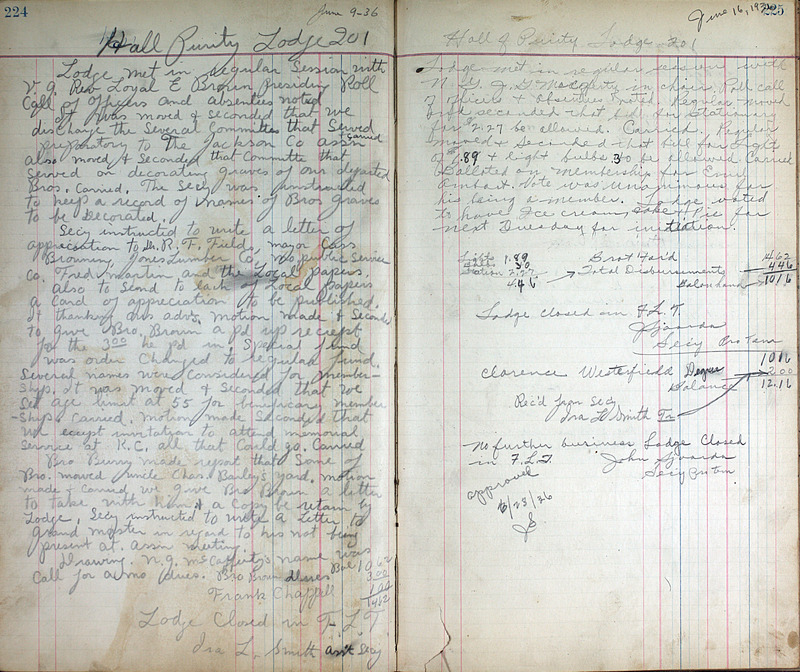 224
June 9-36
Hall Purity Lodge 201
Lodge met in regular Session with
V.G. Rev Loyal E Brown presiding Roll
Call of officers and absentees noted
It was moved & seconded that we
discharge the several Committees that served
preparatory to the Jackson Co ass'n carried
also moved & Seconded that Committee that
served on decorating graves of our departed
Bros. Carried. The Secy was instructed
to keep a record of names of Bros graves
to be Decorated.
Secy instructed to write a letter of
appreciation to Dr. R. T. Fields, mayor Cass
Browning, Jones Lumber Co, Mo, public Service
Co. Fred Martin and the Local papers.
also to Send to each of Local papers
a Card of appreciation to be published.
thanking our advs. motion made & Seconded
to give Bro, Brown a pd up receipt
for the 3.00 he pd in Special fund
was order Changed to regular fund.
Several names were Considered for member-
ship. It was moved & Seconded that we
Set age limit at 55 for member
-ship. Carried. motion made Seconded that
we except invitation to attend memorial
Service at K.C. all that Could go. Carried
Bro Burry made report that Some of
Bro. moved Uncle Chas. Bailey's yard. motion
made & carried we give Bro Brown a letter
to take with him & a Copy be retain by
Lodge. Secy instructed to write a Letter to
grand master in regard to his not being
present at assn meeting.
Drawing. N.G. McCafferty's name was
Call for a mo dues. Bro Brown dues Bal 10.62
3.00
Frank Chappell 1.00
14.62
Lodge Closed in F. L. T
Ira L. Smith ass't Secy
225
June 16, 1936
Hall of Purity Lodge 201
Lodge met in regular session with
N.G. in chair. Roll call
of officers & absentees noted. Regular moved
and seconded that bill for stationery
for 2.27 be allowed. Carried. Regular
moved & seconded that bill for Light
of 1.89 & light bulbs 30 be allowed Carried
Balloted on membership for
. Vote was unanimous for
his being a member. Lodge voted
to have Ice cream, cake & Pie for
next Tuesday for initiation.
Light 1.89 Brot For'd 14.62
Bulbs 30 Total Disbursements 4.46
Station 2.27 Bal on hand 10.16
4.46
Lodge closed in F.L.T.
Secy Pro Tem
10.16
Clarence Westerfield Degree 2.00
Balance 12.16
Rec'd from Secy
Ira L Smith Tr
No further business Lodge Closed
in F.L.T. John
Secy Pro tem
approved
6/23/36
JS